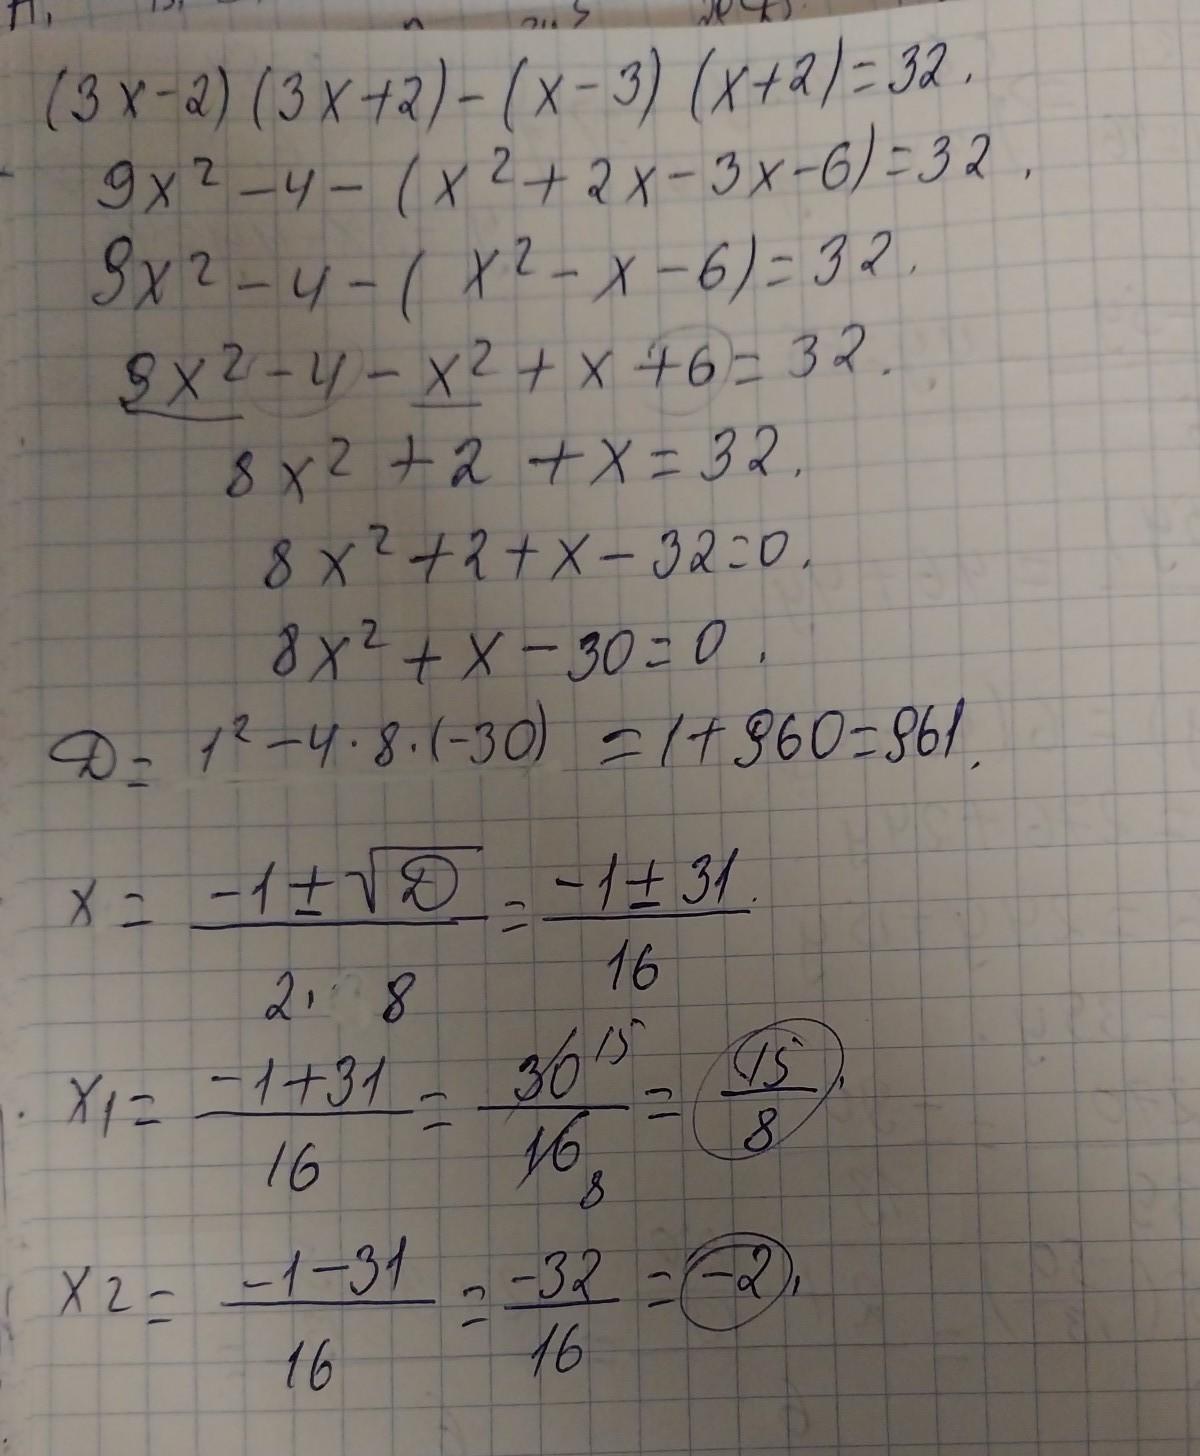 (3x-2)(3x+2)-(x-3)(x+2)=32.
9x²-4-(x²+2x-3x-6)=32.
9x²-4-(x²-x-6)=32.
9x²-4-x²+x+6=32.
8x²+2+x=32.
8x²+2+x-32=0.
8x²+x-30=0.
D=1²-4·8·(-30)=1+960=961.
x=(-1±√D)/(2·8)=(-1±31)/16
x₁=(-1+31)/16=30¹⁵/16₈=15/8.
x₂=(-1-31)/16=-32/16=-2.